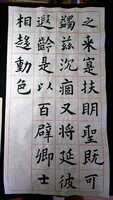 之来寔扶明聖既可
蠲茲沉痼又將延彼
遐齡是以百辟卿士
相趨動色